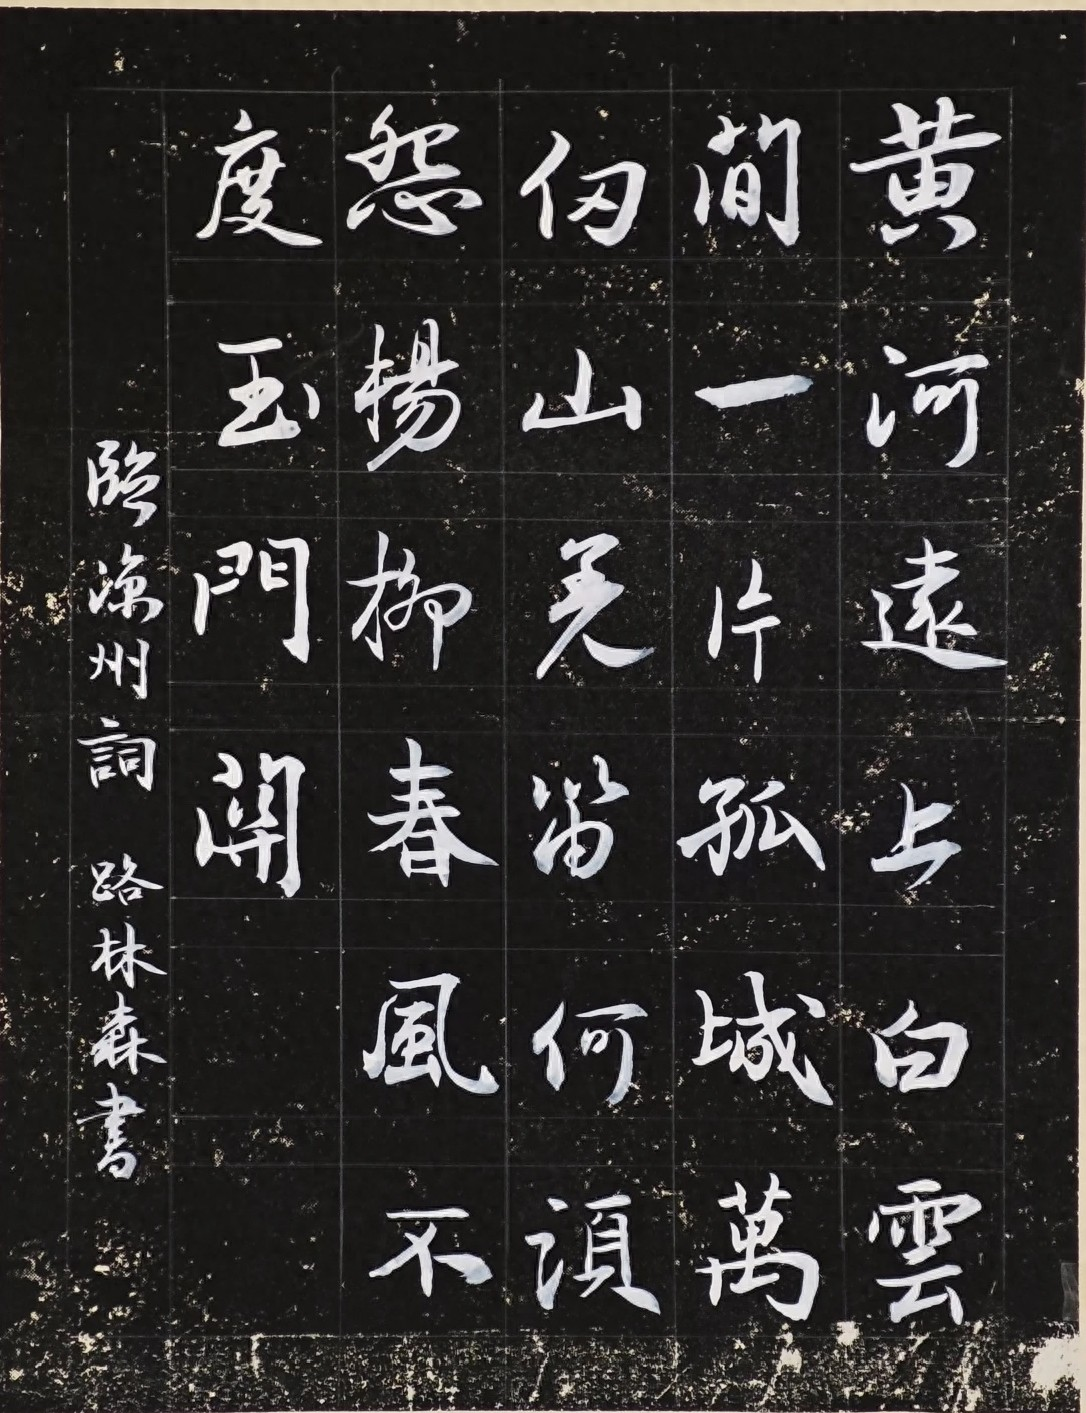 黄河遠上白雲
間一片孤城萬
仞山羌笛何須
怨楊柳春風不
度玉門關
臨涼州詞 路林森書